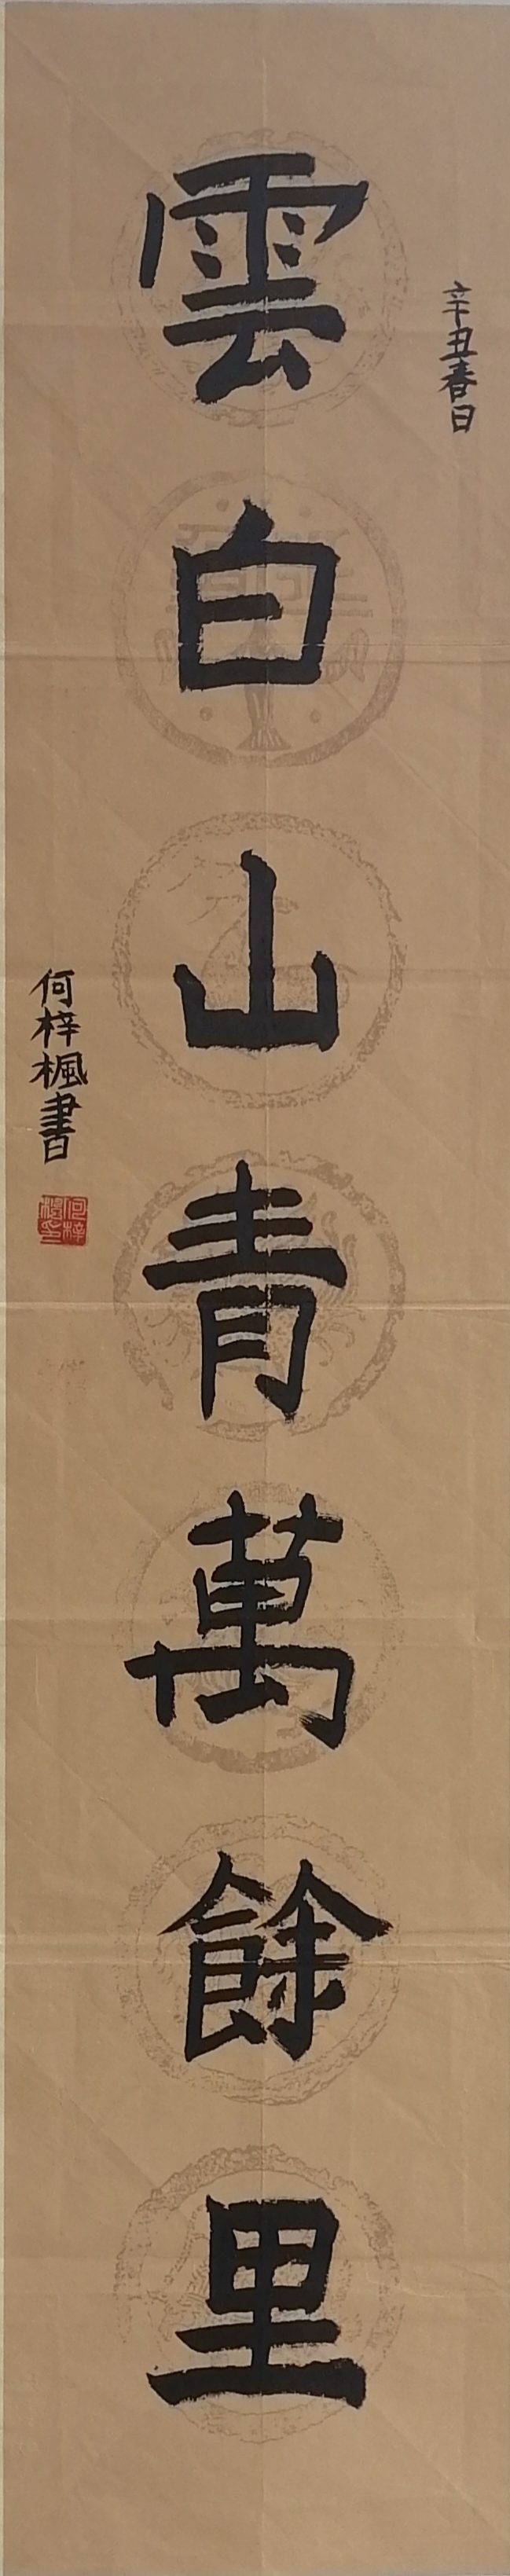 辛丑春日
雲白山青萬餘里
何梓楓書
何梓楓印